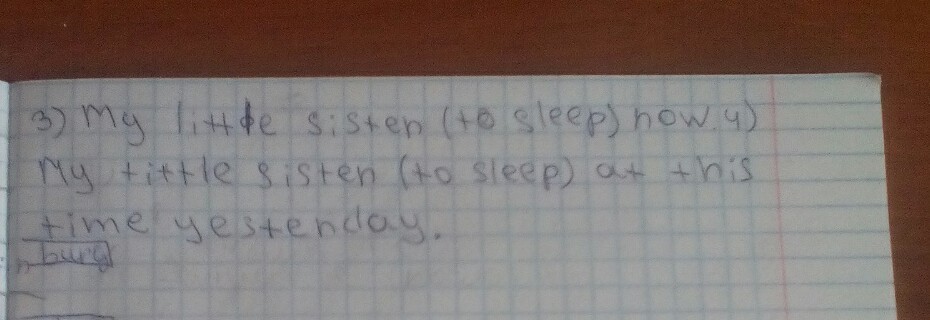 3) My little sister (to sleep) now. 4)
My tittle sister (to sleep) at this
time yesterday.
burg